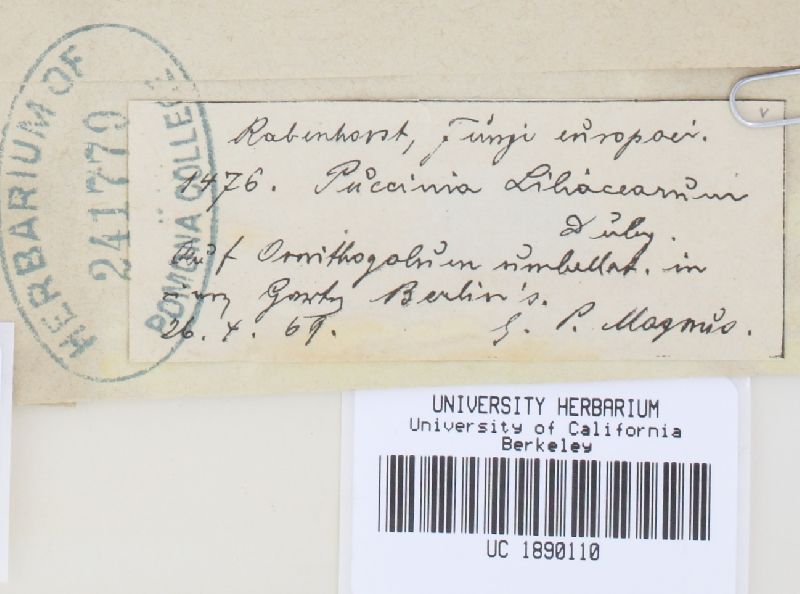 HERBARIUM OF
241779
POMONA COLLEGE
Rabenhorst, Fungi europaei.
1476. Puccinia Liliacearum
Duby.
Auf Ornithogalum umbellat. in
Berlin's.
26. 4. 69. P. Magnus.
UNIVERSITY HERBARIUM
University of California
Berkeley
UC 1890110